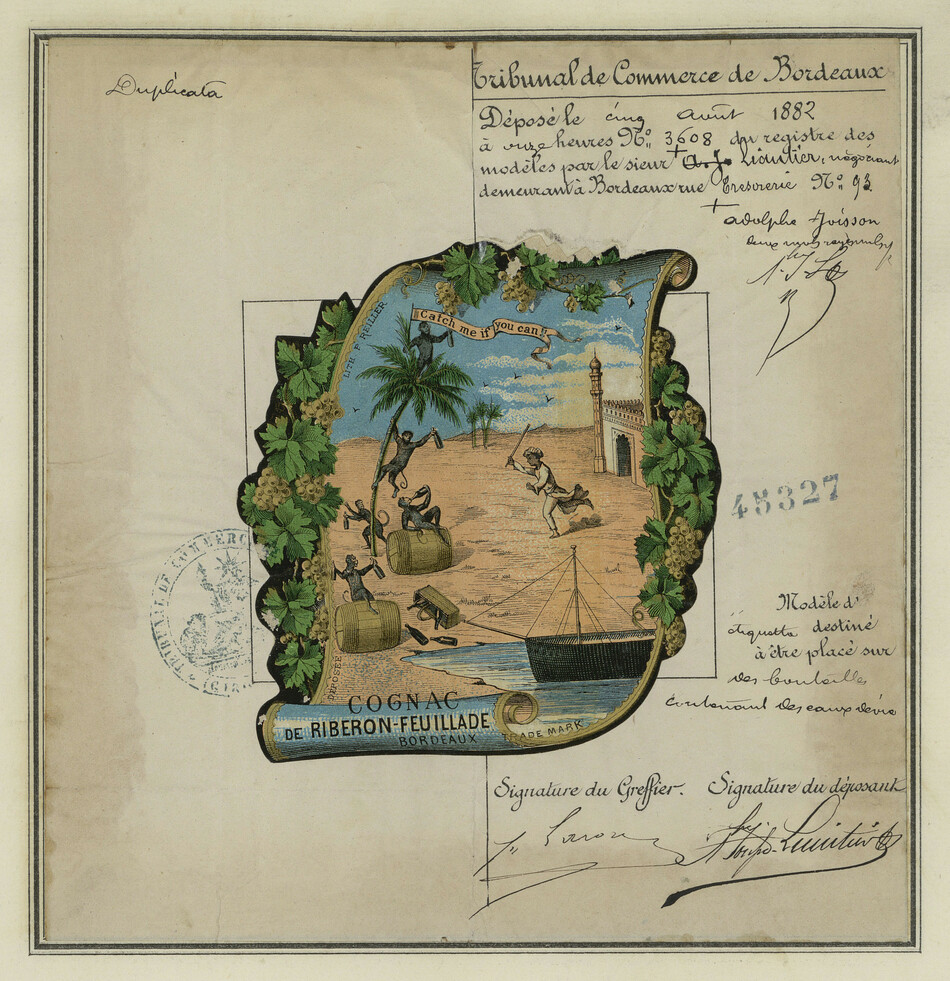 Duplicata
Tribunal de Commerce de Bordeaux
Déposé le cinq Août 1882
à onze heures No. 3608 du registre des
modèles par le sieur + A. J. Lioutier, négociant
demeurant à Bordeaux rue Trésorerie No. 93
+ adolphe
deux mots
Catch me if you can!!
LITH F. REILLER
45327
TRIBUNAL DE COMMERCE
Modèle d'
étiquette destiné
à être placé sur
des bouteilles
contenant des eaux de vie
DEPOSÉE
COGNAC
DE RIBERON-FEUILLADE
BORDEAUX
TRADE MARK
Signature du Greffier. Signature du déposant